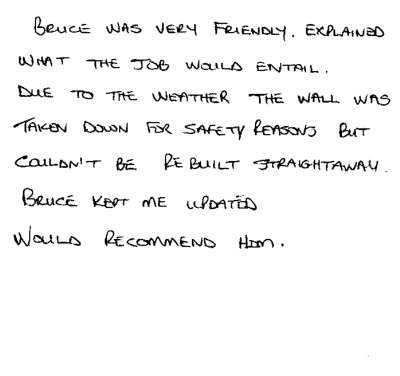 BRUCE WAS VERY FRIENDLY. EXPLAINED
WHAT THE JOB WOULD ENTAIL.
DUE TO THE WEATHER THE WALL WAS
TAKEN DOWN FOR SAFETY REASONS BUT
COULDN'T BE REBUILT STRAIGHTAWAY.
BRUCE KEPT ME UPDATED
WOULD RECOMMEND HIM.